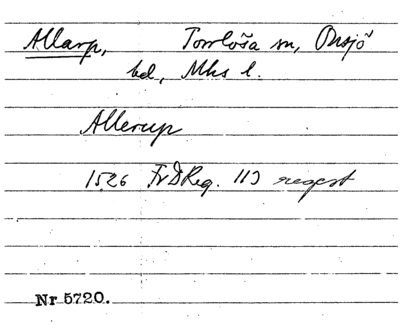 Allarp, Torrlösa sn, Onsjö
hd, Mhs l.
Allerup
1526 FrDReg. 113 regest
Nr 5720.